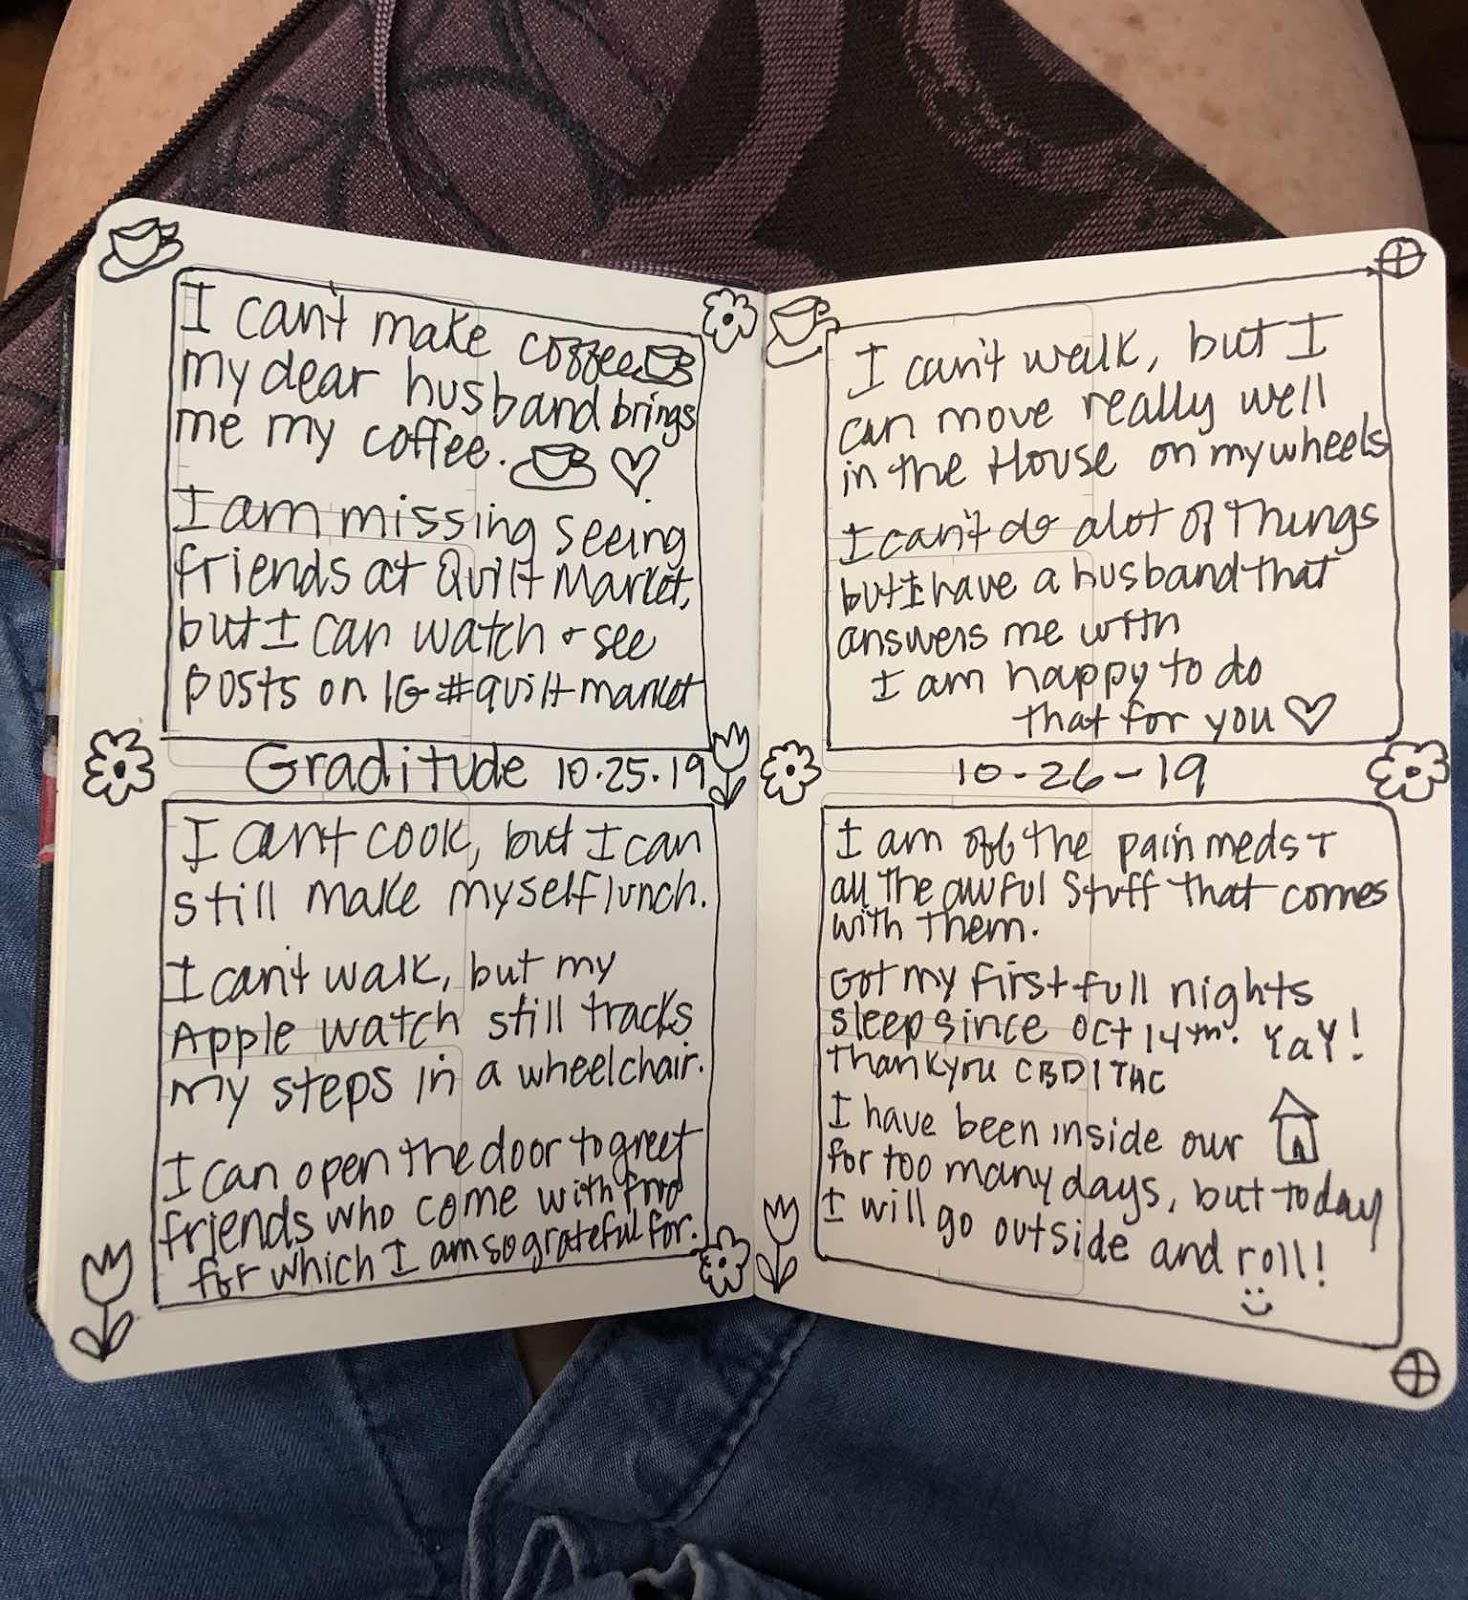 I can't make coffee
my dear husband brings
me my coffee.
I am missing seeing
friends at Quilt Market,
but I can watch + see
posts on IG #quiltmarket
Graditude 10.25.19
I cant cook, but I can
still make myself lunch.
I can't walk, but my
Apple watch still tracks
my steps in a wheelchair.
I can open the door to greet
friends who come with food
for which I am so grateful for.
I can't walk, but I
can move really well
in the House on my wheels
I can't do alot of Things
but I have a husband that
answers me with
I am happy to do
that for you
10-26-19
I am off the pain meds +
all the awful stuff that comes
with them.
Got my first full nights
sleep since Oct 14th. YaY!
Thank you CBD1THC
I have been inside our
for too many days, but today
I will go outside and roll!